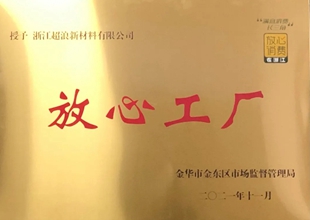 授予 浙江超浪新材料有限公司
放心消费
在浙江
放心工厂
金华市金东区市场监督管理局
二〇二一年十一月